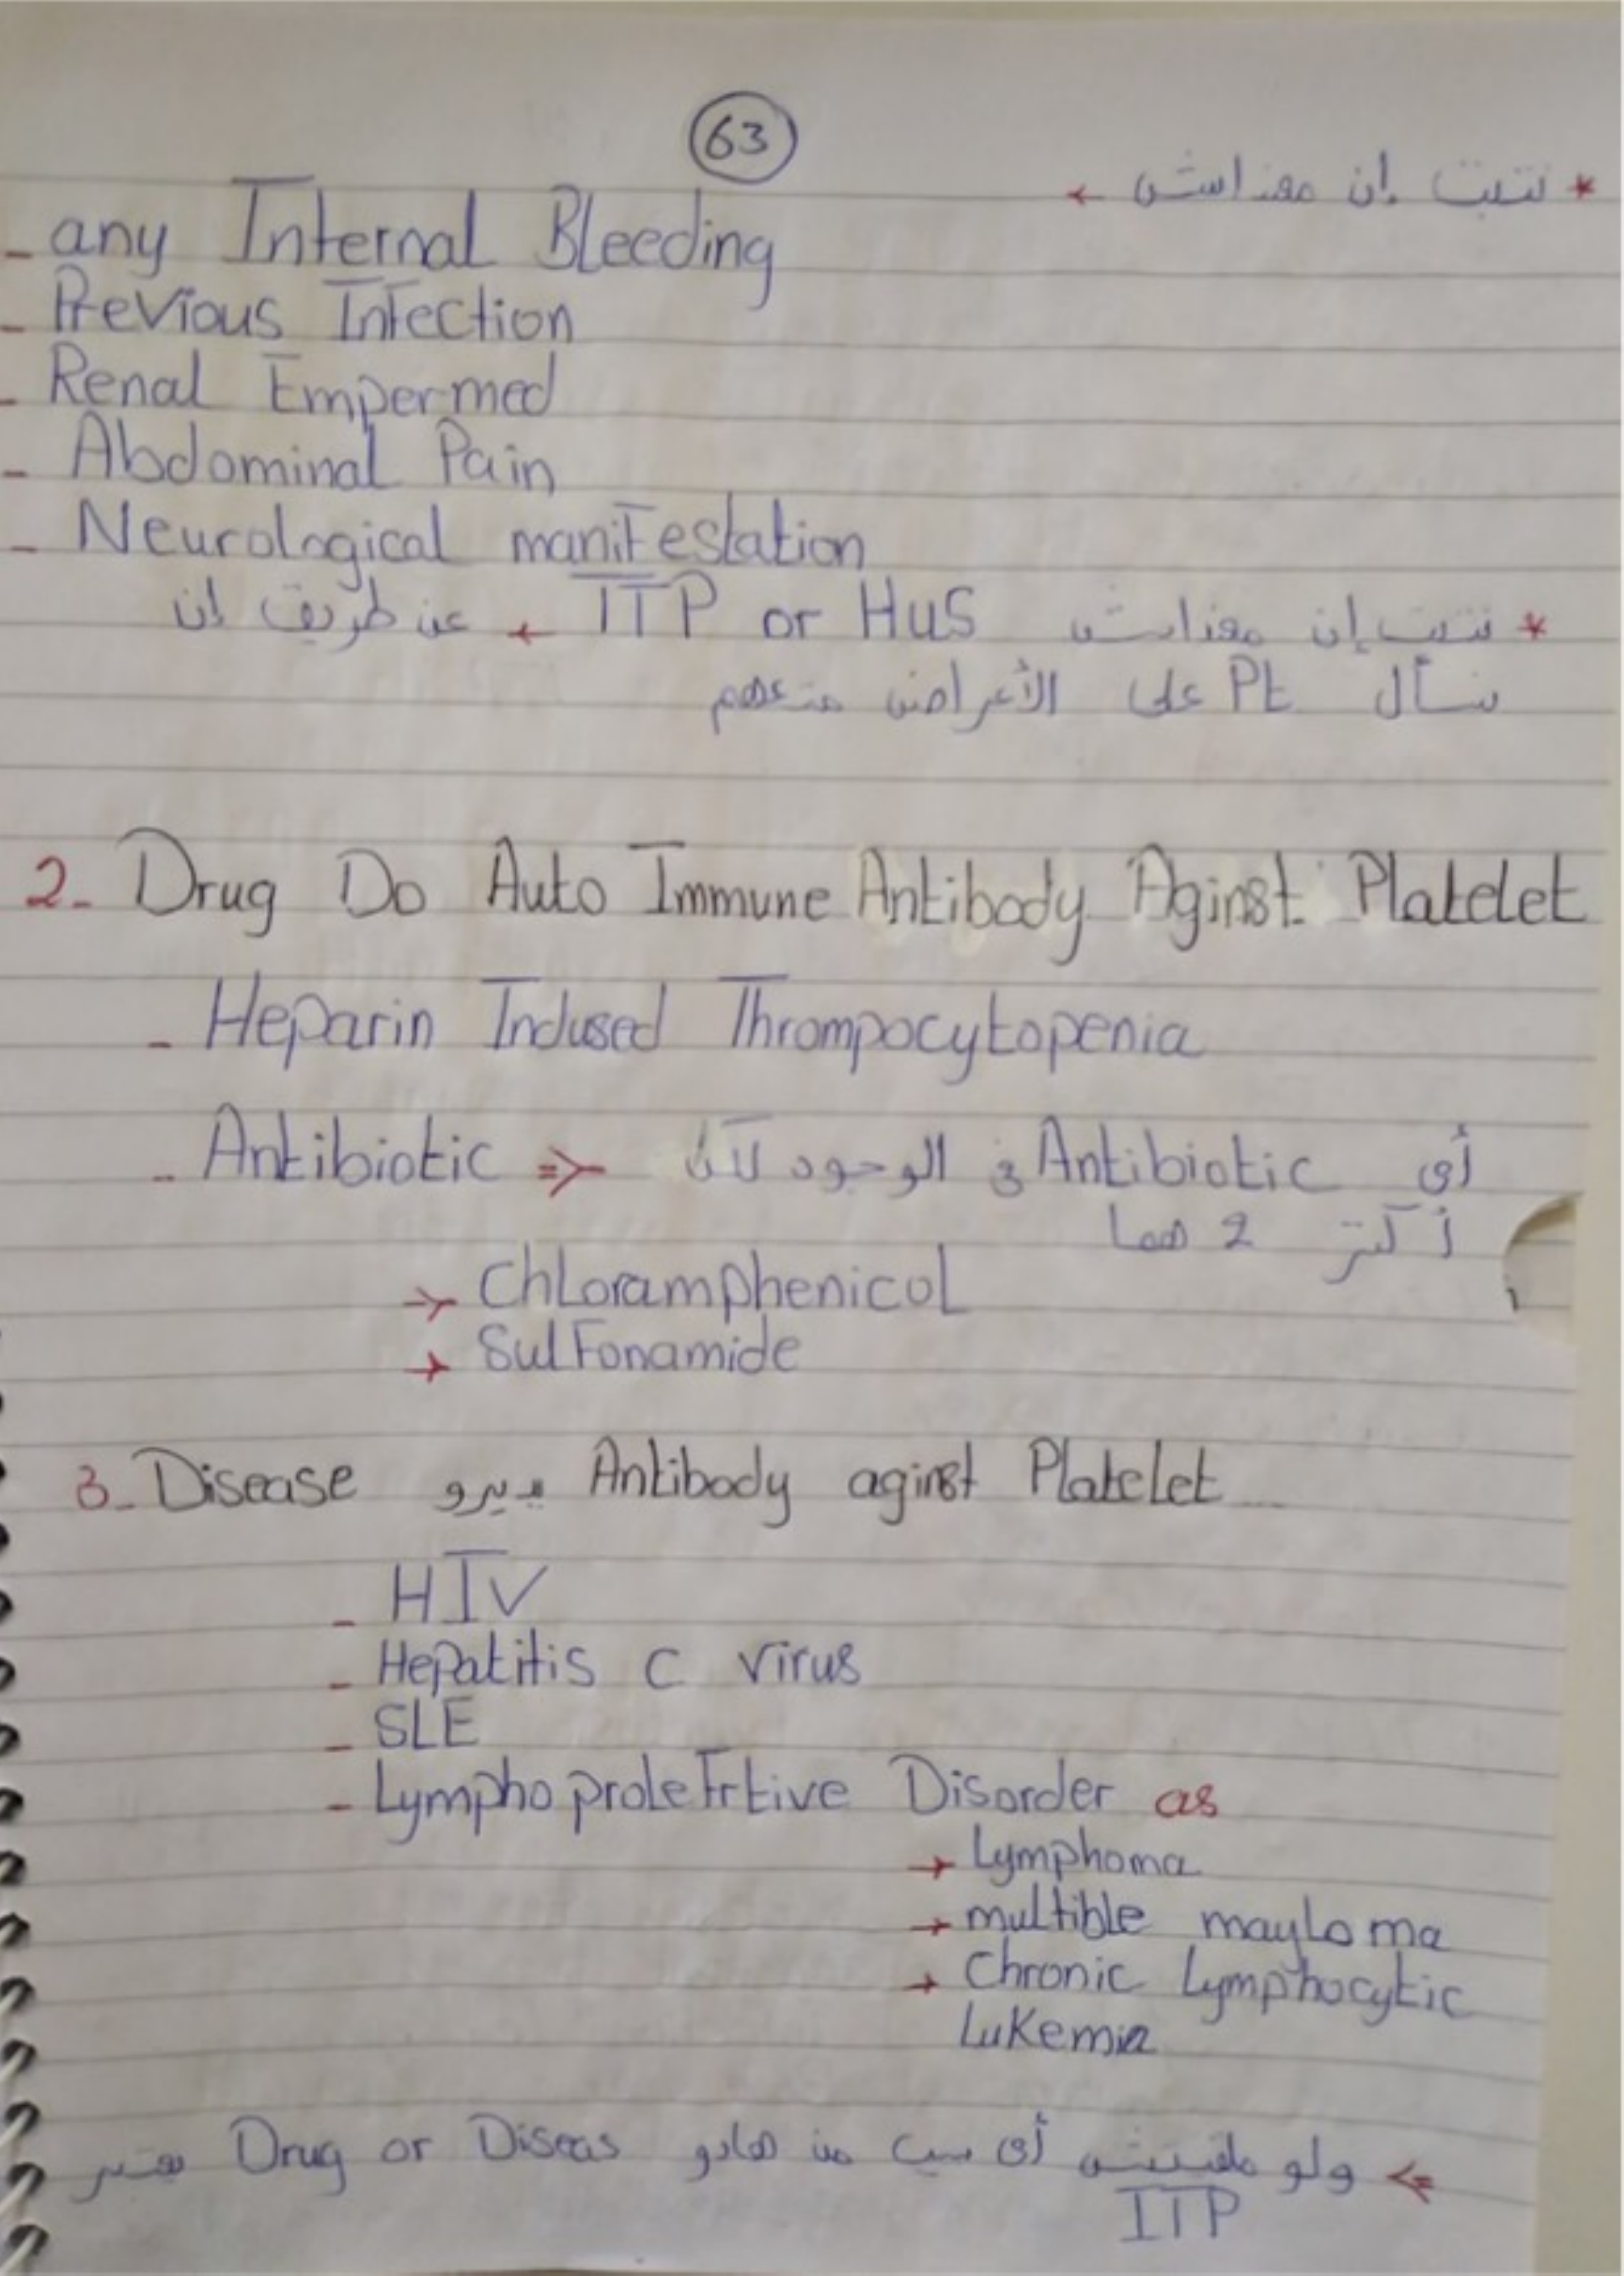 63
* نتبت إن معنداش ←
- any Internal Bleeding
- Previous Infection
- Renal Empermed
- Abdominal Pain
- Neurological manifestation
* نتبت إن معنداش ITP or HUS ← عن طريق إن
نسأل Pt على الأعراض متعهم
2- Drug Do Auto Immune Antibody Aginst Platelet
- Heparin Indused Thrompocytopenia
- Antibiotic => أي Antibiotic في الوجود لكن
أكتر 2 هما
→ Chloramphenicol
→ Sulfonamide
3- Disease يديرو Antibody aginst Platelet
- HIV
- Hepatitis C virus
- SLE
- Lympho proleFrtive Disorder as
→ Lymphoma
→ multible mayloma
→ Chronic Lymphocytic
Lukemia
<= ولو ملقيتش أي سبب من هادو Drug or Diseas
ITP